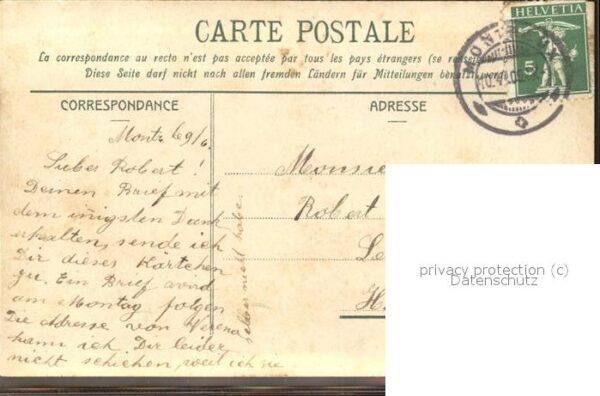 CARTE POSTALE
La correspondance au recto n'est pas acceptée par tous les pays étrangers (se
Diese Seite darf nicht nach allen fremden Ländern für Mitteilungen
HELVETIA
5
CORRESPONDANCE
ADRESSE
9/6
Lieber Robert!
Deinen Brief mit
dem iñigsten Dank
erhalten, sende ich
Dir dieses Kärtchen
zu. Ein Brief wird
am Montag folgen
Die Adresse von Verena
kann ich Dir leider
nicht schicken, weil ich sie
selber nicht habe.
Monsie
Robert
H.
privacy protection (c)
Datenschutz